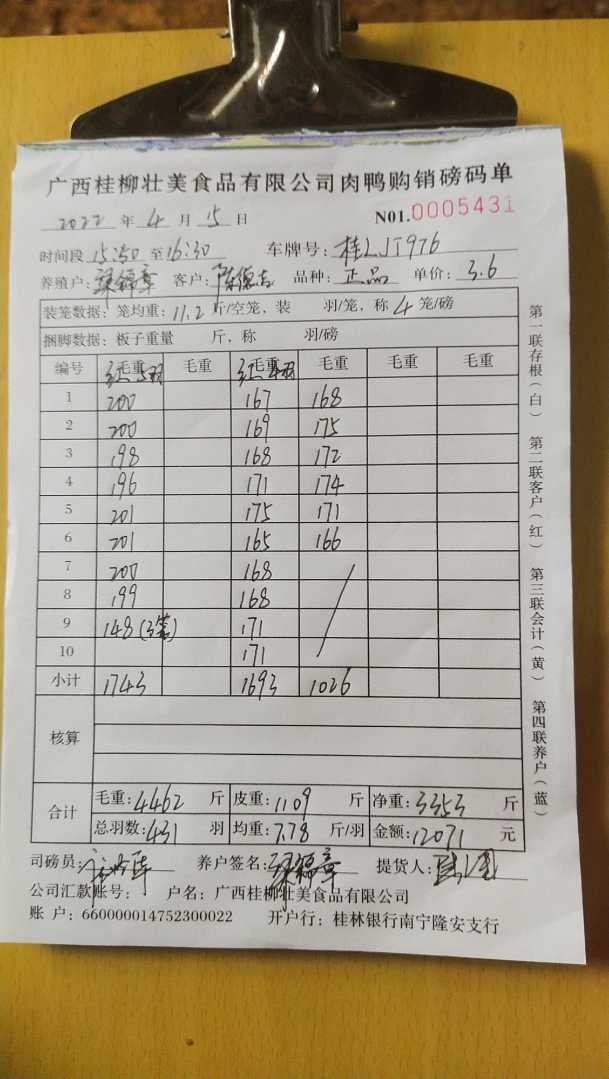 广西桂柳壮美食品有限公司肉鸭购销磅码单
2022 年 4 月 15 日 N01.0005431
时间段 15:50 至 16:30 车牌号: 桂LJT976
养殖户: 梁锦章 客户: 陈德吉 品种: 正品 单价: 3.6
装笼数据: 笼均重: 11.2 斤/空笼, 装 羽/笼, 称 4 笼/磅
捆脚数据: 板子重量 斤, 称 羽/磅
编号 毛重 5羽 毛重 毛重 4羽 毛重 毛重 毛重
1 200 167 168
2 200 169 175
3 198 168 172
4 196 171 174
5 201 175 171
6 201 165 166
7 200 168
8 199 168
9 148 (3笼) 171
10 171
小计 1743 1693 1026
核算
合计 毛重: 4462 斤 皮重: 1109 斤 净重: 3353 斤
总羽数: 431 羽 均重: 7.78 斤/羽 金额: 12071 元
司磅员: 养户签名: 梁锦章 提货人:
公司汇款账号: 户名: 广西桂柳壮美食品有限公司
账 户: 660000014752300022 开户行: 桂林银行南宁隆安支行
第一联存根(白) 第二联客户(红) 第三联会计(黄) 第四联养户(蓝)